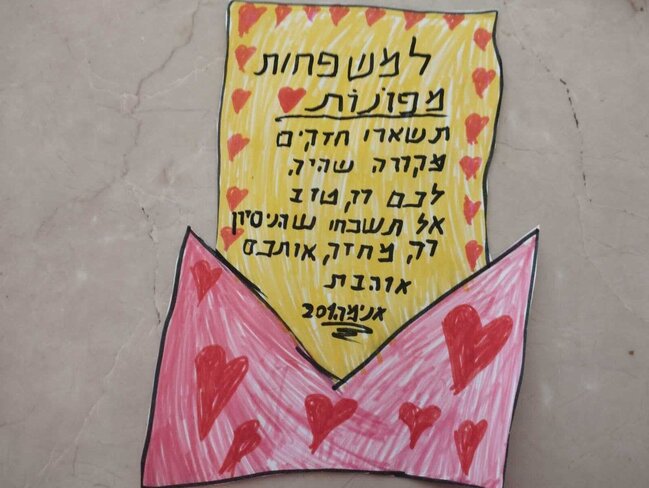 למשפחות
מפונות
תשארי חזקים
מקווה שהיה
לכם רק טוב
אל תשכחי שהניסיון
רק מחזק אותכם
אוהבת